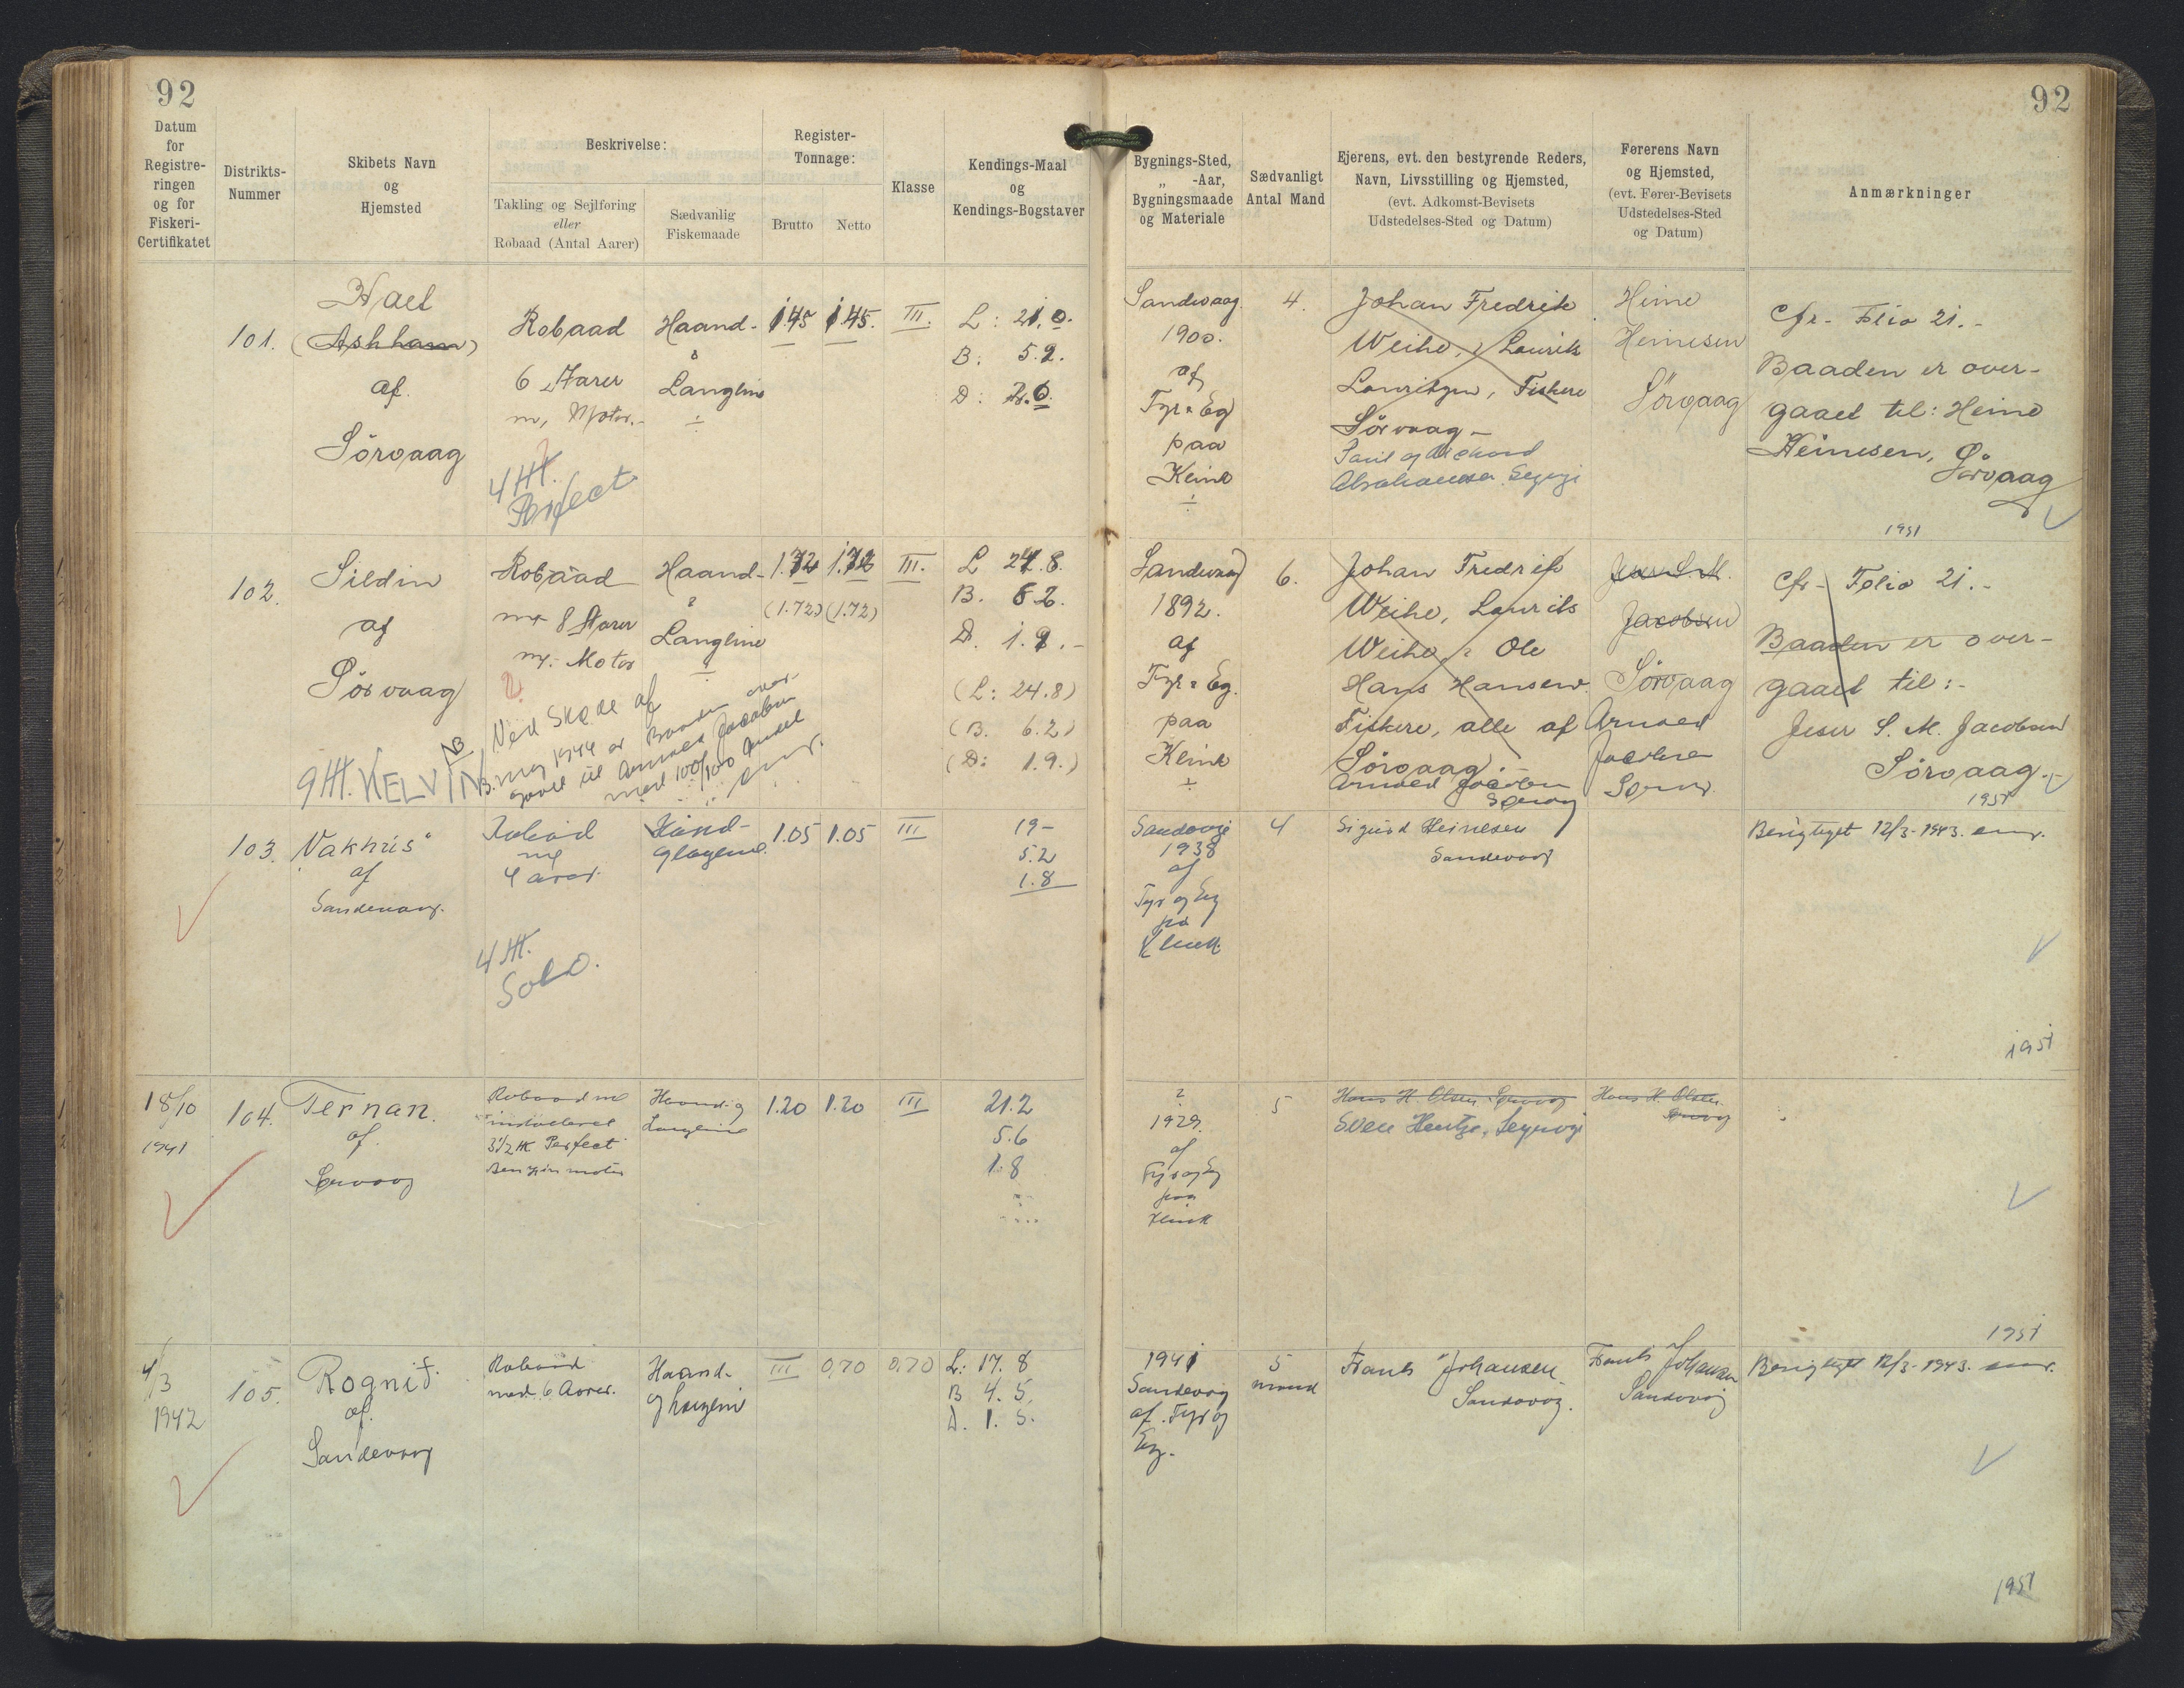 92
92
Datum
for
Registre-
ringen
og for
Fiskeri-
Certifikatet
Distrikts-
Nummer
Skibets Navn
og
Hjemsted
Beskrivelse:
Takling og Sejlføring
eller
Robaad (Antal Aarer)
Sædvanlig
Fiskemaade
Register-
Tonnage:
Brutto
Netto
Klasse
Kendings-Maal
og
Kendings-Bogstaver
Bygnings-Sted,
„ -Aar,
Bygningsmaade
og Materiale
Sædvanligt
Antal Mand
Ejerens, evt. den bestyrende Reders,
Navn, Livsstilling og Hjemsted,
(evt. Adkomst-Bevisets
Udstedelses-Sted og Datum)
Førerens Navn
og Hjemsted,
(evt. Fører-Bevisets
Udstedelses-Sted
og Datum)
Anmærkninger
101.
(Askham)
af
Sörvaag
Robaad
6 Aarer
m, Motor.-
4 HK.
Perfect
Haand-
&
Langline
1.45
1.45.
III.
L: 21.0.
B: 5.2.
D: 2.0.
Sandvaag.
1900.
af
Fyr & Eg
paa
Klink
4.
Johan Fredrik
Weihe, & Laurits
Fiskere
Sörvaag -
Heine
Heinesen
Sörvaag
Cfr. Folio 21.-
Baaden er over-
gaaet til: Heine
Heinesen,
Sörvaag
1951
102.
Sildin
af
Sörvaag
9 HK. KELVIN
NB
Robaad
m 8 Aarer
m. Motor
Ved Skøde af
3. maj 1944 er Baaden over-
gaaet til Arnold Jacobsen
med 100/100 Andel
Haand-
&
Langline
1.72
1.72
(1.72)
(1.72)
III.
L 24.8.
B. 6.2.
D. 1.9.-
(L: 24.8)
(B. 6.2)
(D: 1.9.)
Sandvaag
1892.
af
Fyr & Eg.
paa
Klink
6.
Johan Fredrik
Weihe, Laurits
Weihe, & Ole
Hans Hansen.
Fiskere, alle af
Sörvaag.-
Arnold Jacobsen
Jacobsen
Sörvaag
Arnold
Jacobsen
Cfr- Folio 21.-
Baaden er over-
gaaet til:-
S. M. Jacobsen
Sörvaag.-
1951
103.
af
Sandevaag.
Robåd
m/
4 arer.
4 HK.
Solo.
Hånd-
1.05
1.05
III
19-
5.2
1.8
1938
af
Fyr og Eg
på
Klink
4
Sigurd Heinesen
Sandevaag
Berigtiget 12/3-1943.
1951
18/10
1941
104.
Ternan.
af
Robaad m/
installeret
3½ HK Perfect
Benzin motor
Haand og
Langline
1.20
1.20
III
21.2
5.6
1.8
?
1929.
af
Fyr og Eg
paa
Klink
5
Hans H Olsen
Hans H. Olsen
1951
4/3
1942
105.
af.
Sandevaag
Robaad
med 6 Aarer.
Haand-
og Langline
III
0,70
0,70
L: 17. 8
B 4. 5.
D. 1. 5.
1941
Sandevåg
af Fyr og
Eg.
5
mand
Johansen
Sandevåg.
Johansen
Sandevåg
Berigtiget 12/3-1943.
1951